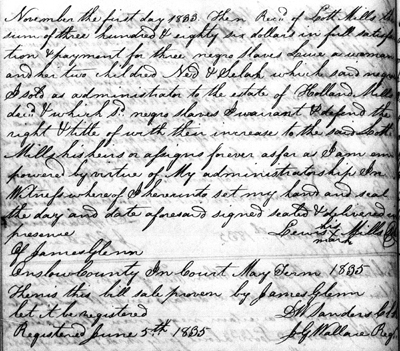 November the first day 1833 Then Recd. of Lott Mills the
sum of three hundred & eighty six dollars in full satisfac
tion & payment for three negro slaves a woman
and her two children Ned & Selah which said negroes
I sold as administrator to the estate of Holland Mills
decd & which sd. negro slaves I warrant & defend the
right & title of with their increase to the said Lott
Mills his heirs or assigns forever as far as I am em
powered by virtue of My administratorship In
Witness whereof I hereunto set my hand and seal
the day and date aforesaid signed sealed & delivered in
presence Lewis his X mark Mills
James Glenn
Onslow County In Court May Term 1835
Then is this bill sale proven by James Glenn
Let it be registered D W Sanders
Registered June 5th 1835 J G Wallace Regr